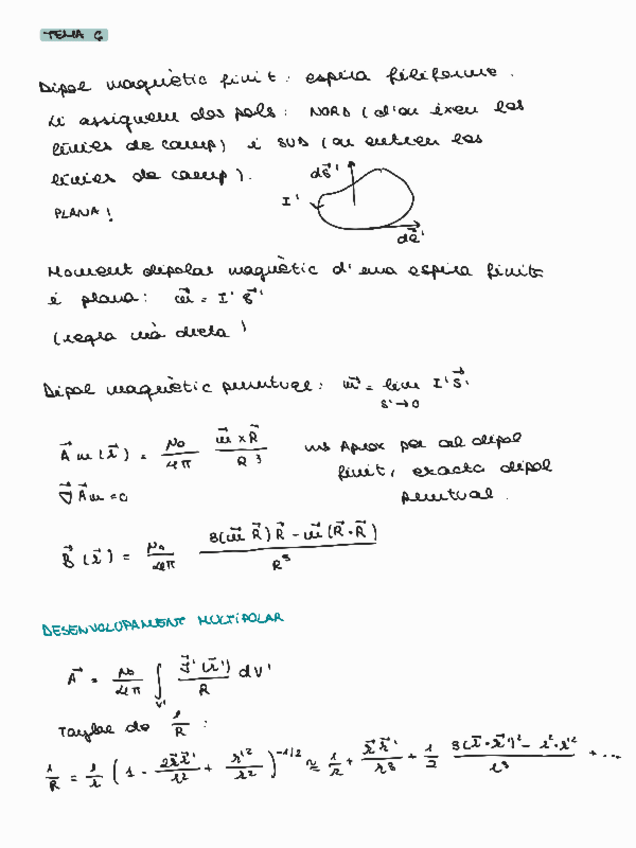 TEMA 6
Dipol magnètic finit: espira filiforme.
Li assignem dos pols: NORD (d'on ixen les
línies de camp) i SUD (on entren les
línies de camp).
dS⃗'
I'
PLANA!
dl⃗'
Moment dipolar magnètic d'una espira finita
i plana: m⃗ = I' S⃗'
(regla mà dreta)
Dipol magnètic puntual: m⃗ = lim I' S⃗'
S' → 0
A⃗m(r⃗) = μ₀/4π m⃗ × R⃗ / R³ Aprox per al dipol
finit, exacta dipol
∇⃗ A⃗m = 0 puntual.
B⃗(r⃗) = μ₀/4π 3(m⃗ R⃗)R⃗ - m⃗(R⃗·R⃗) / R⁵
DESENVOLUPAMENT MULTIPOLAR
A⃗ = μ₀/4π ∫V' J⃗'(r⃗')/R dV'
Taylor de 1/R :
1/R = 1/r (1 - 2r⃗r⃗'/r² + r'²/r²)^-1/2 ≈ 1/r + r⃗r⃗'/r³ + 1/2 3(r⃗·r⃗')² - r²·r'² / r⁵ + ...